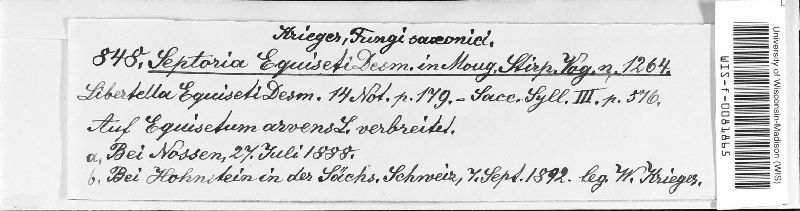 Krieger, Fungi saxonici.
848. Septoria Equiseti Desm. in Moug. Stirp. Vog. n. 1264.
Libertella Equiseti Desm. 14 Not. p. 179. - Sacc. Syll. III. p. 576.
Auf Equisetum arvens L. verbreitet.
a, Bei Nossen, 27. Juli 1888.
b. Bei Hohnstein in der Sächs. Schweiz, 7. Sept. 1892. leg. W. Krieger.
University of Wisconsin-Madison (WIS)
WIS-f-0081845